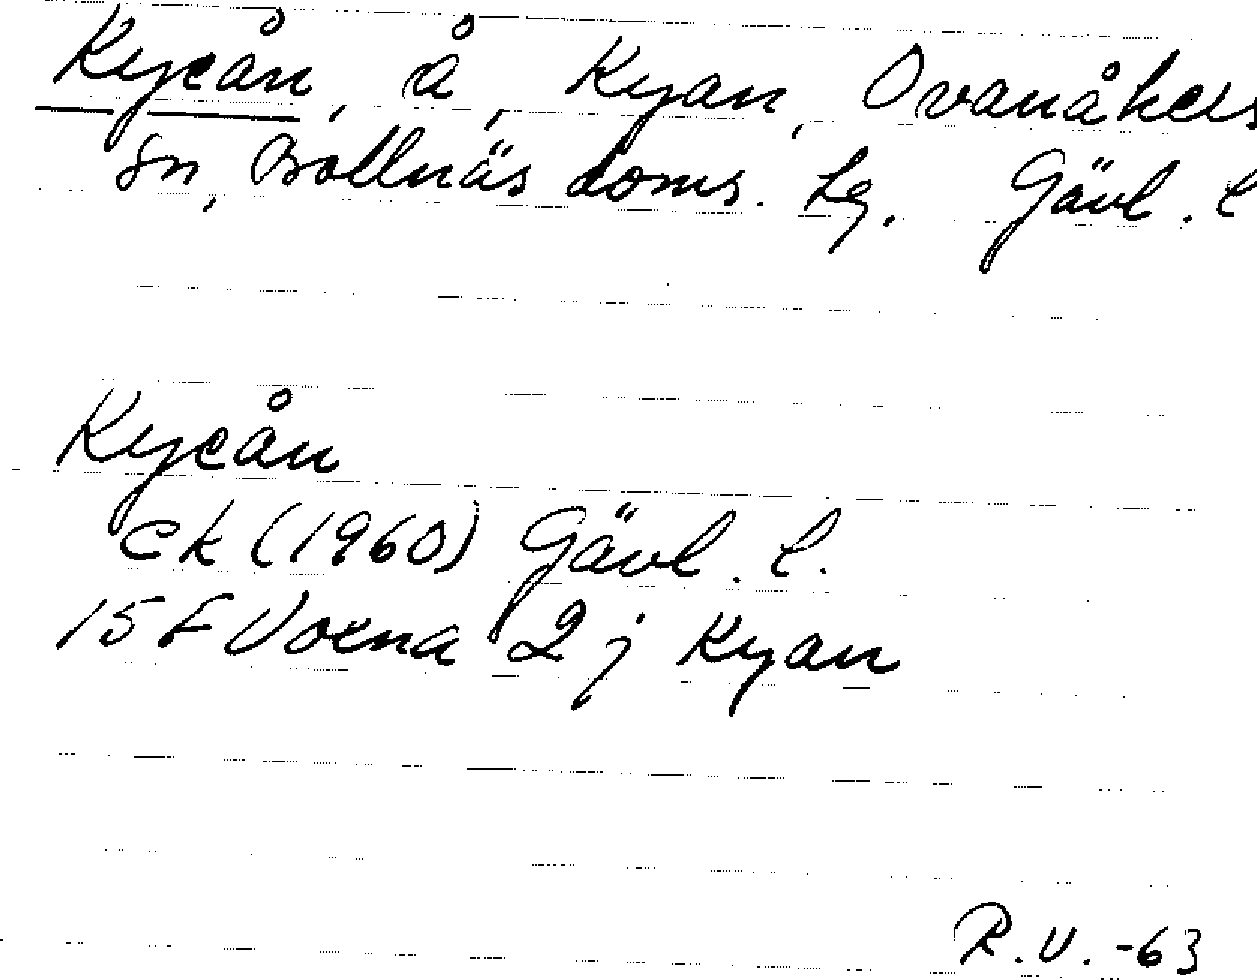 Kyeån, å, Kyan, Ovanåkers
sn, Bollnäs doms. lg. Gävl. l
Kyeån
ek (1960) Gävl. l.
15 F Voxna 2 j Kyan
R.V. -63